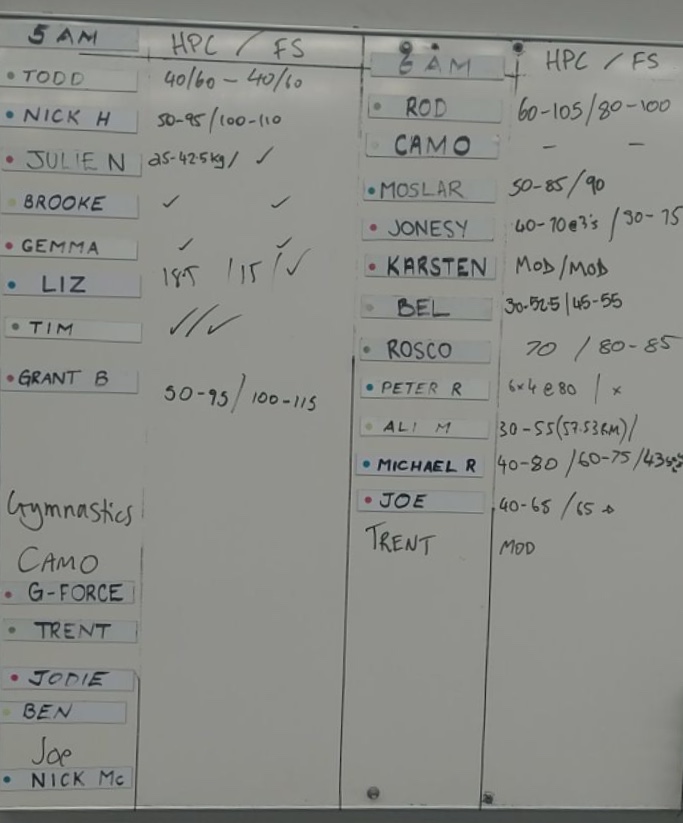 5 AM HPC / FS
TODD 40/60 - 40/60
NICK H 50-95/100-110
JULIE N 25-42.5kg/ ✓
BROOKE ✓ ✓
GEMMA ✓ ✓
LIZ 185 /15/✓
TIM ✓/✓
GRANT B 50-95/100-115
Gymnastics
CAMO
G-FORCE
TRENT
JODIE
BEN
Joe
NICK Mc
6 AM HPC / FS
ROD 60-105/80-100
CAMO - -
MOSLAR 50-85/90
JONESY 40-70@3's /30-75
KARSTEN MOD/MOD
BEL 30-52.5/45-55
ROSCO 70 / 80-85
PETER R 6x4@80 / x
ALI M 30-55(57.53RM)/
MICHAEL R 40-80 /60-75/43
JOE 40-65 /65
TRENT MOD